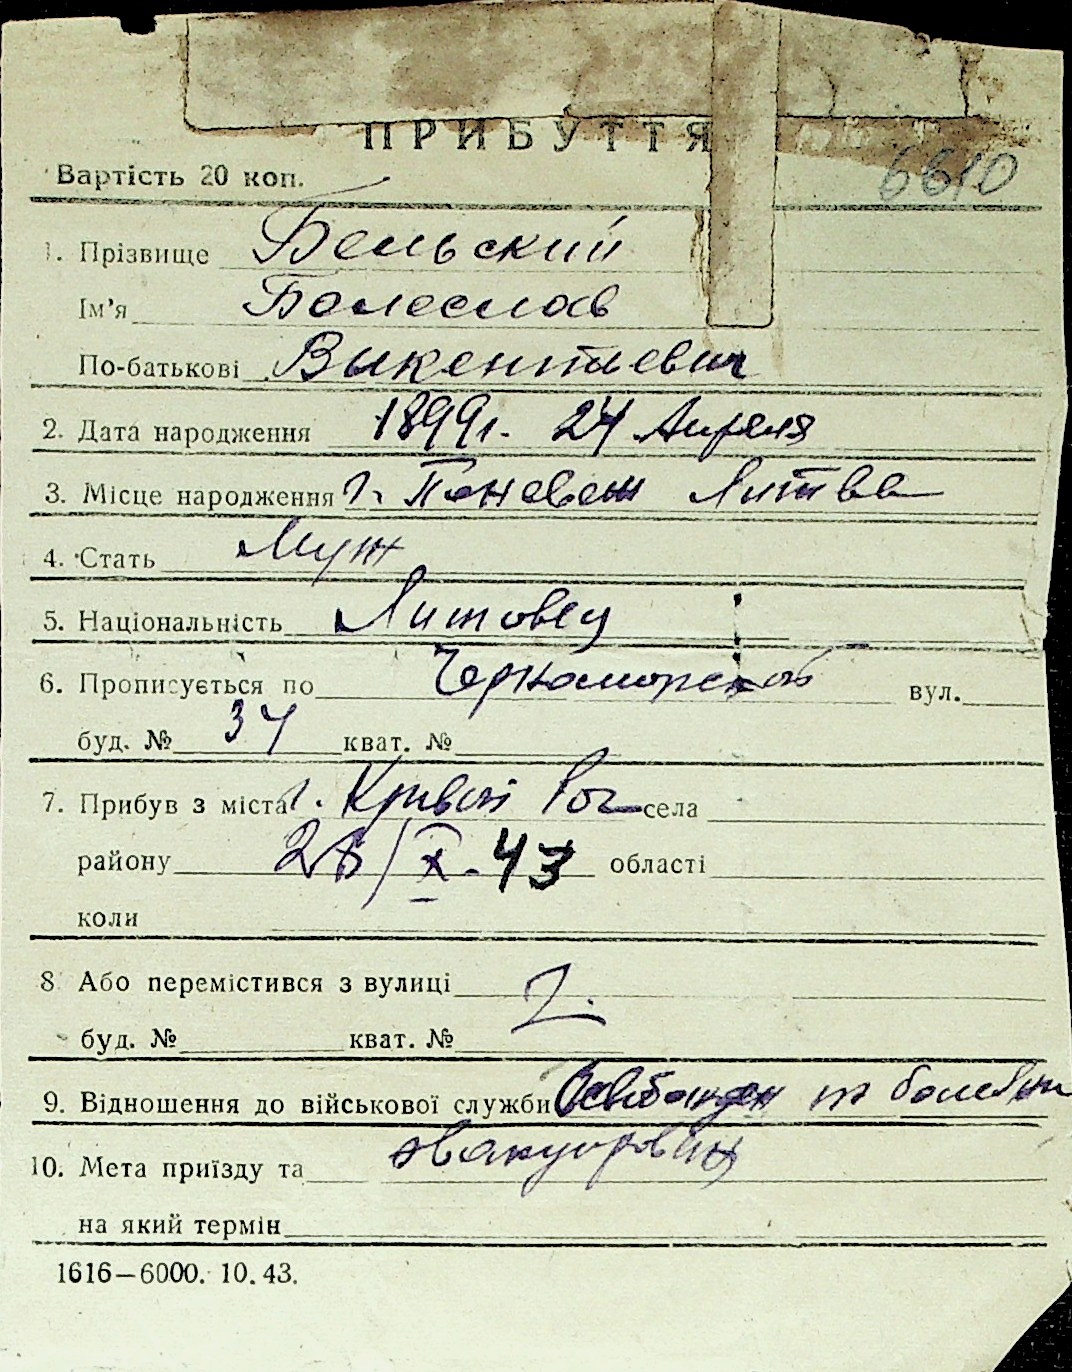 ПРИБУТТЯ
Вартість 20 коп. 6610
1. Прізвище Бельский
Ім'я Болеслав
По-батькові Выкентиевич
2. Дата народження 1899 г. 24 Апреля
3. Місце народження г. Поневеж Литва
4. Стать Муж
5. Національність Литовец
6. Прописується по Черноморской вул.
буд. № 34 кват. №
7. Прибув з міста г. Кривой Рог села
району 28/X-43 області
коли
8 Або перемістився з вулиці
буд. № кват. №
9. Відношення до військової служби Освобожден по болезни
10. Мета приїзду та эвакуирован
на який термін
1616—6000. 10.43.